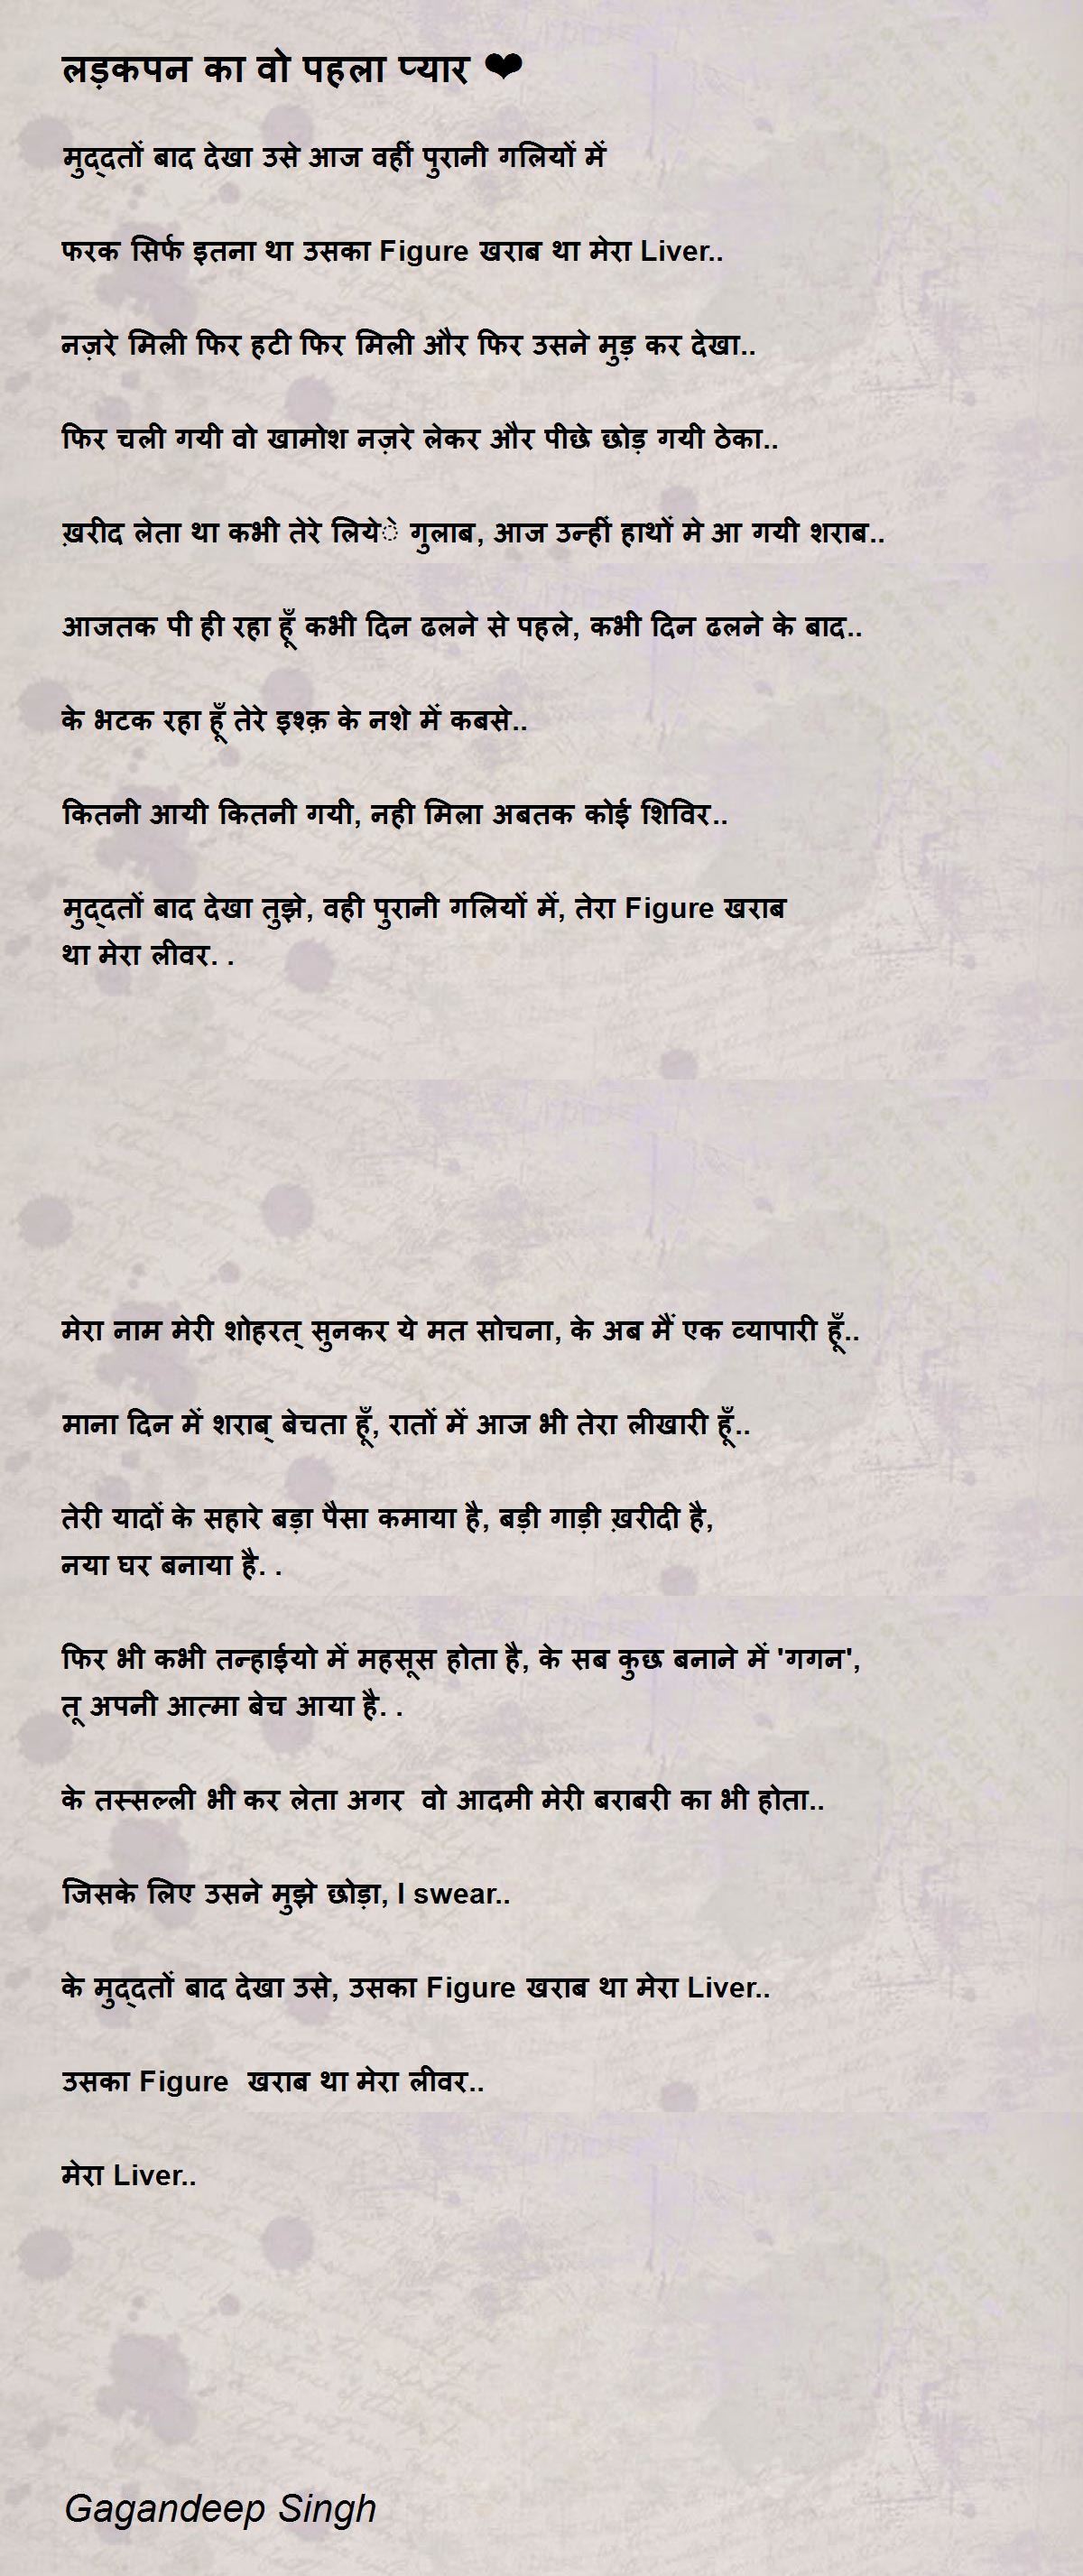 लड़कपन का वो पहला प्यार ❤
मुद्दतों बाद देखा उसे आज वहीं पुरानी गलियों में
फरक सिर्फ इतना था उसका Figure खराब था मेरा Liver..
नज़रे मिली फिर हटी फिर मिली और फिर उसने मुड़ कर देखा..
फिर चली गयी वो खामोश नज़रे लेकर और पीछे छोड़ गयी ठेका..
ख़रीद लेता था कभी तेरे लियेे गुलाब, आज उन्हीं हाथों मे आ गयी शराब..
आजतक पी ही रहा हूँ कभी दिन ढलने से पहले, कभी दिन ढलने के बाद..
के भटक रहा हूँ तेरे इश्क़ के नशे में कबसे..
कितनी आयी कितनी गयी, नही मिला अबतक कोई शिविर..
मुद्दतों बाद देखा तुझे, वही पुरानी गलियों में, तेरा Figure खराब
था मेरा लीवर. .
मेरा नाम मेरी शोहरत् सुनकर ये मत सोचना, के अब मैं एक व्यापारी हूँ..
माना दिन में शराब् बेचता हूँ, रातों में आज भी तेरा लीखारी हूँ..
तेरी यादों के सहारे बड़ा पैसा कमाया है, बड़ी गाड़ी ख़रीदी है,
नया घर बनाया है. .
फिर भी कभी तन्हाईयो में महसूस होता है, के सब कुछ बनाने में 'गगन',
तू अपनी आत्मा बेच आया है. .
के तस्सल्ली भी कर लेता अगर  वो आदमी मेरी बराबरी का भी होता..
जिसके लिए उसने मुझे छोड़ा, I swear..
के मुद्दतों बाद देखा उसे, उसका Figure खराब था मेरा Liver..
उसका Figure  खराब था मेरा लीवर..
मेरा Liver..
Gagandeep Singh